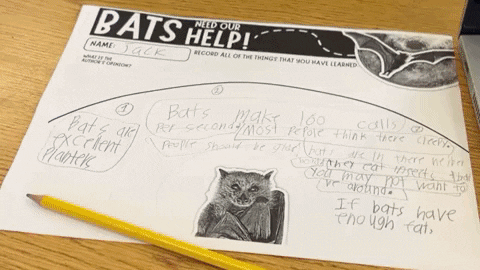 BATS NEED OUR HELP!
NAME: Jack
RECORD ALL OF THE THINGS THAT YOU HAVE LEARNED
WHAT IS THE
AUTHOR'S OPINION?
①
②
Bats are
excellent
planters
Bats make 160 calls
per second/most people think there creepy.
people should be glad
bats are in there
eat insects
you may not want to
around.
If bats have
enough eat,